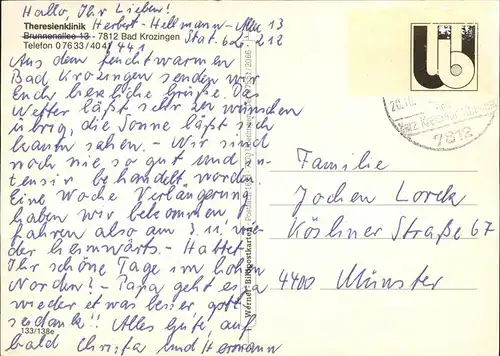 Hallo, Ihr Lieben!
Theresienklinik Herbert-Hellmann-Allee 13
Brunnenallee 13 - 7812 Bad Krozingen
Telefon 0 76 33 / 40 41 441 Stat. 62 212
Aus dem feuchtwarmen
Bad Krozingen senden wir
Euch herzliche Grüße. Das
Wetter läßt sehr zu wünschen
übrig, die Sonne läßt sich
kaum sehen. - Wir sind
noch nie so gut und in-
tensiv behandelt worden.
Eine Woche Verlängerung
haben wir bekommen,
fahren also am 3.11. wie-
der heimwärts. - Hattet
Ihr schöne Tage im hohen
Norden? - Papa geht es ja
wieder etwas besser, gott-
seidank!! Alles Gute, auf
bald Christa und Hermann
133/138e
Werner Bildpostkarten
7812
Familie
Jochen Lorck
Kösliner Straße 67
4400 Münster